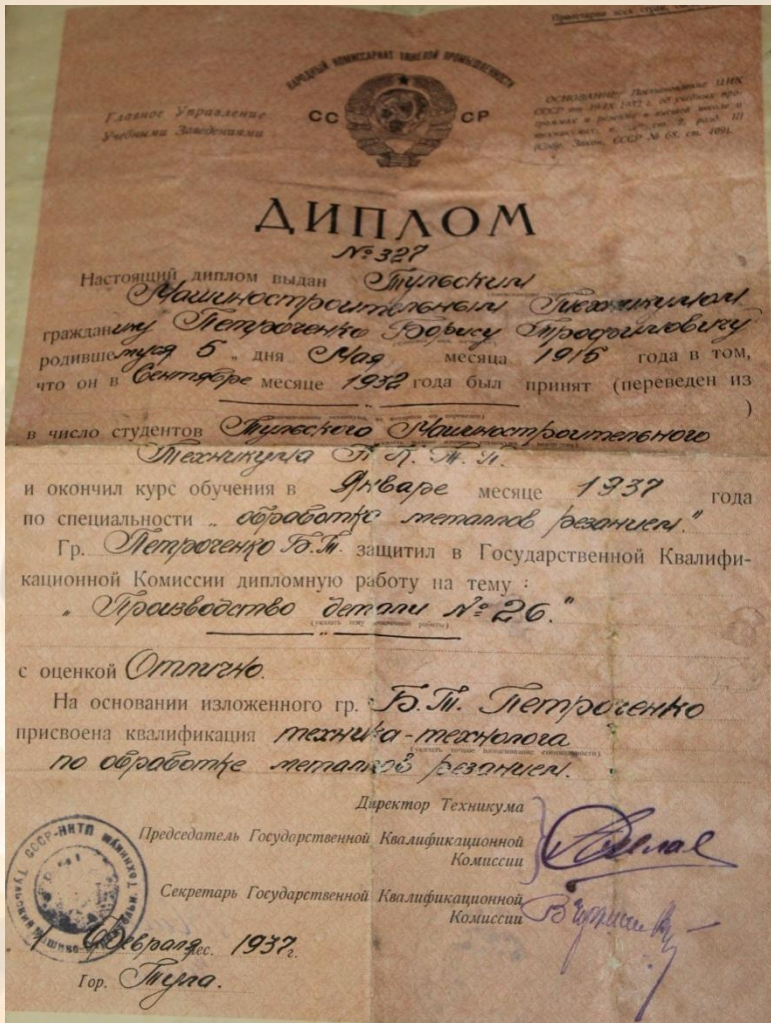 Пролетарии всех стран,
НАРОДНЫЙ КОМИССАРИАТ ТЯЖЕЛОЙ ПРОМЫШЛЕННОСТИ
СС СР
Главное Управление
Учебными Заведениями
ОСНОВАНИЕ: Постановление ЦИК
СССР от 19/IX-1932 г. об учебных про-
граммах и режиме в высшей школе и
техникумах, п. 2, разд. II)
(Собр. Закон. СССР № 68, ст. 409).
ДИПЛОМ
№ 327
Настоящий диплом выдан Тульским
Машиностроительным Техникумом
гражданину Петроченко Борису Трофимовичу
родившемуся 5 " дня Мая месяца 1915 года в том,
что он в Сентябре месяце 1932 года был принят (переведен из
)
в число студентов Тульского Машиностроительного
Техникума Н.К.Т.П.
и окончил курс обучения в Январе месяце 1937 года
по специальности „ обработка металлов резанием."
Гр. Петроченко Б.Т. защитил в Государственной Квалифи-
кационной Комиссии дипломную работу на тему :
„ Производство детали № 26."
с оценкой Отлично.
На основании изложенного гр. Б.Т. Петроченко
присвоена квалификация техника-технолога
(указать точное наименование специальности)
по обработке металлов резанием.
Директор Техникума
Председатель Государственной Квалификационной
Комиссии
Секретарь Государственной Квалификационной
Комиссии
1 Февраля мес. 1937 г.
Гор. Тула.
СССР-НКТП